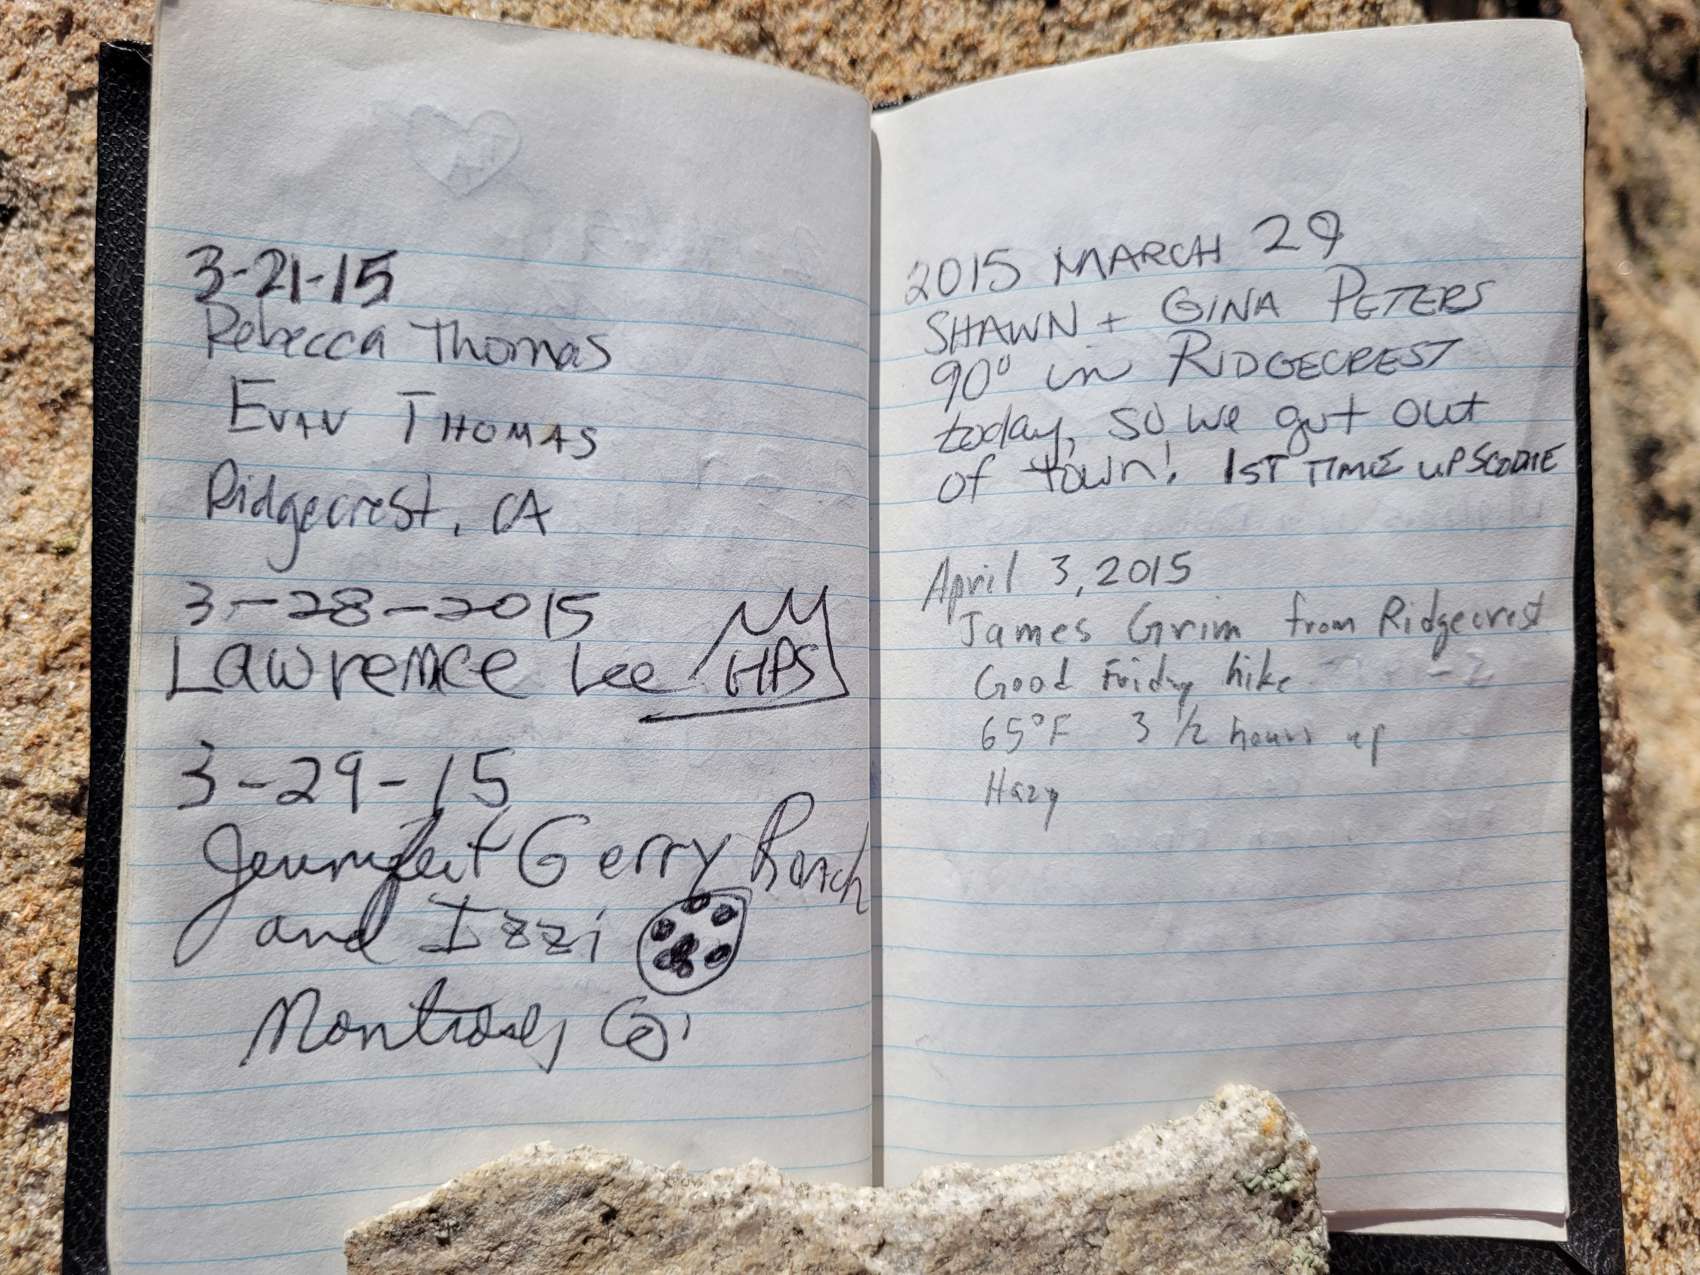 3-21-15
Rebecca Thomas
EVAN THOMAS
Ridgecrest, CA
3-28-2015
Lawrence Lee HPS
3-29-15
Gerry Roach
and Izzi
Montrose, Co
2015 MARCH 29
SHAWN + GINA PETERS
90° in RIDGECREST
today, so we got out
of town! 1ST TIME UP SCODIE
April 3, 2015
James Grim from Ridgecrest
Good Friday hike
65°F 3 1/2 hours up
Hazy